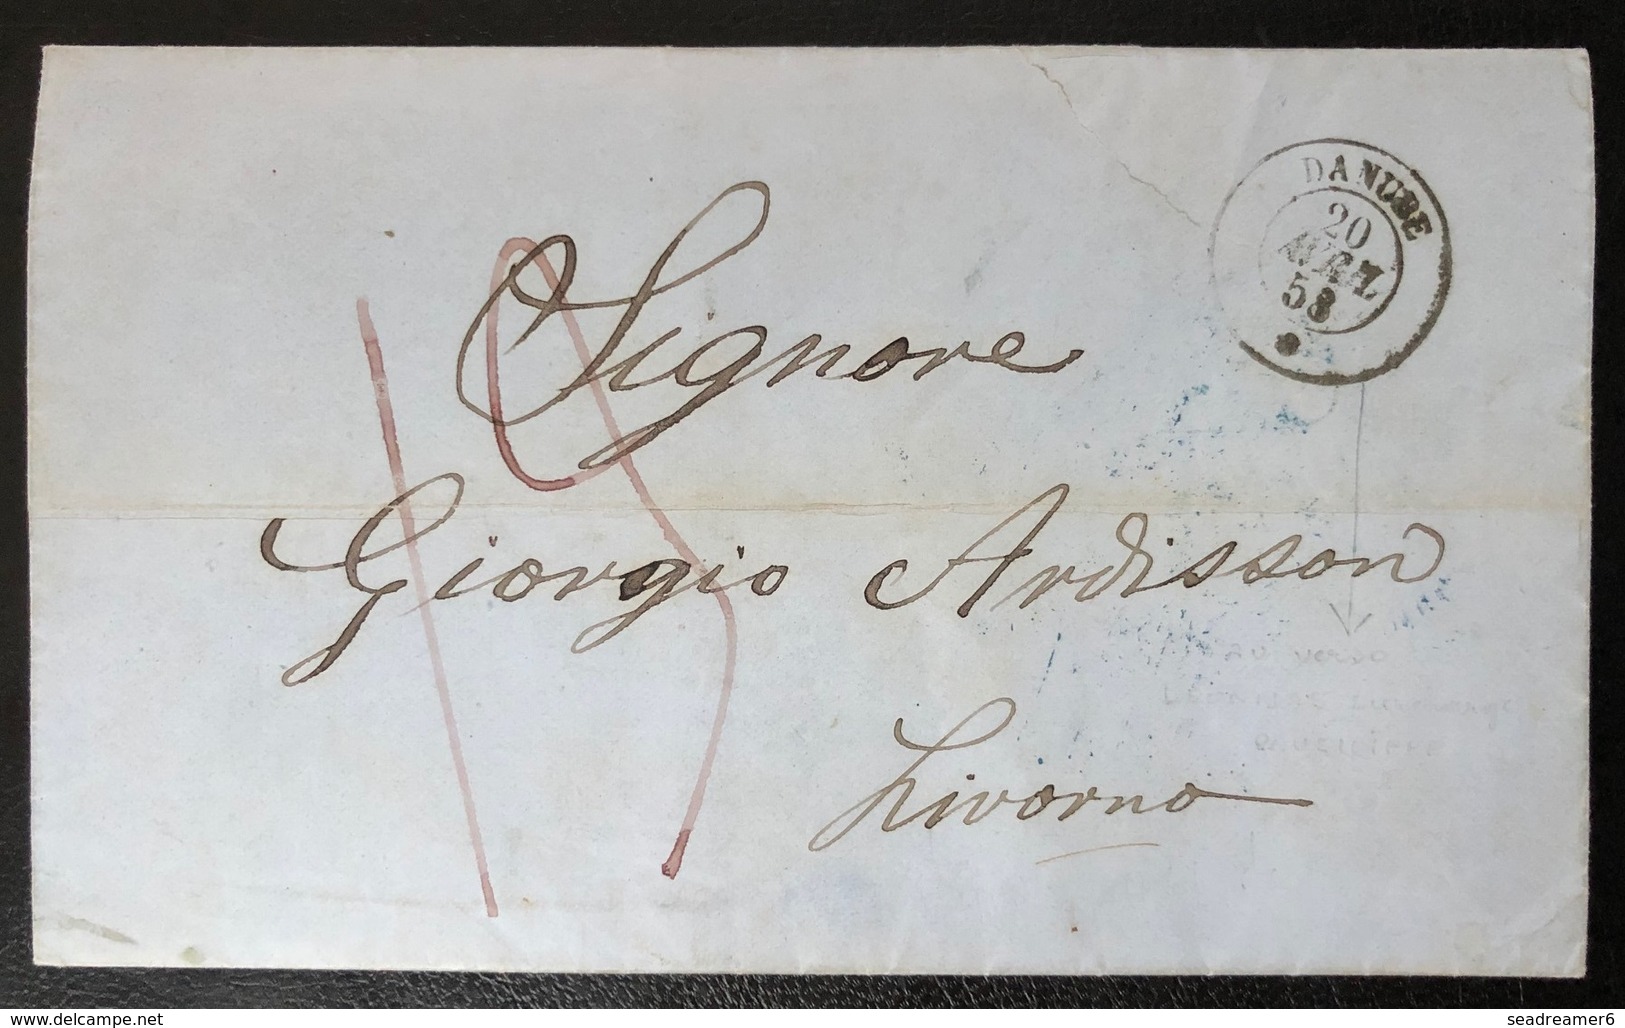 DANUBE
20
AVRIL
58
Signore
Giorgio Ardisson
Livorno
au verso
delcampe.net
seadreamer6